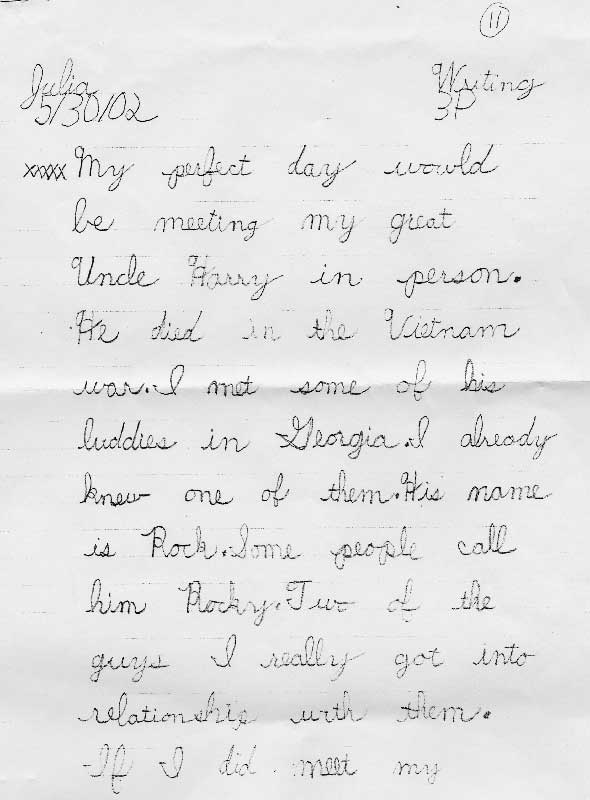 11
Julia Writing
5/30/02 3P
xxxxx My perfect day would
be meeting my great
Uncle Harry in person.
He died in the Vietnam
war. I met some of his
buddies in Georgia. I already
knew one of them. His name
is Rock. Some people call
him Rocky. Two of the
guys I really got into
relationship with them.
If I did meet my